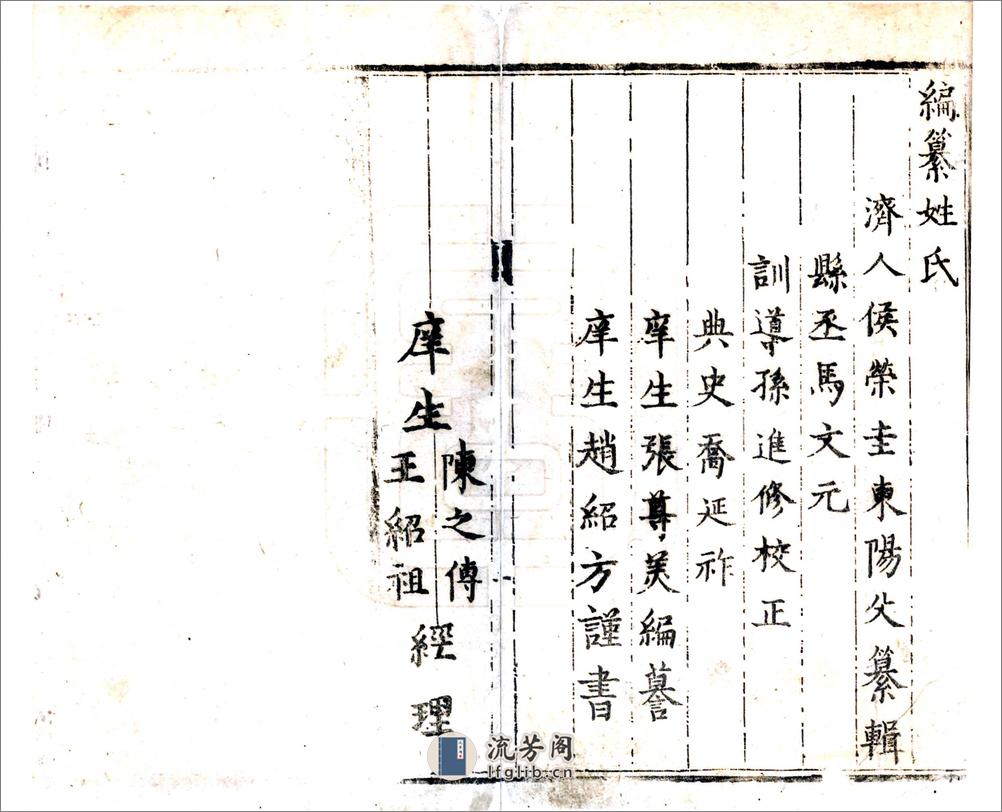 編纂姓氏
濟人侯榮圭東陽父纂輯
縣丞馬文元
訓導孫進修校正
典史喬延祚
庠生張尊美編謄
庠生趙紹方謹書
庠生
陳之傅
王紹祖
經理
流芳阁
lfglib.cn